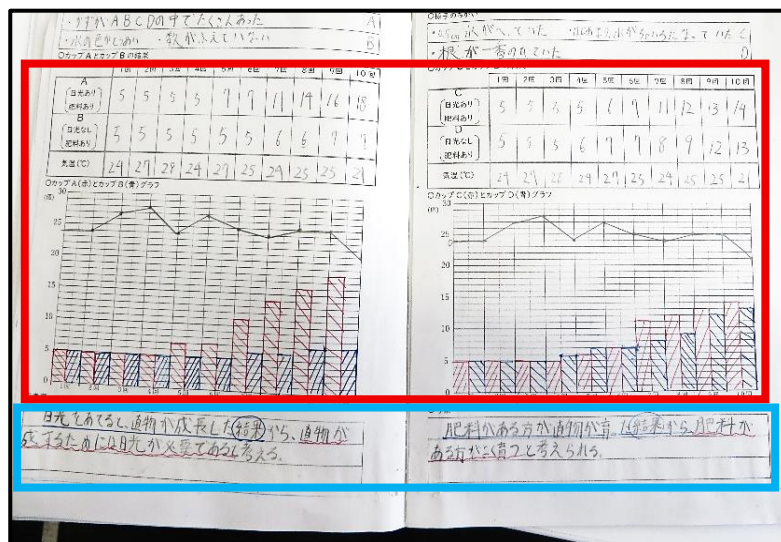 ・かずがABCDの中でたくさんあった A
・水の色がじみあい ・数がふえていない B
○カップAとカップBの結果
1回 2回 3回 4回 5回 6回 7回 8回 9回 10回
A
日光あり
肥料あり
5 5 5 5 7 7 11 14 16 18
B
日光なし
肥料あり
5 5 5 5 5 5 6 6 7 7
気温(℃) 24 27 28 24 27 25 24 25 25 21
○カップA(赤)とカップB(青)グラフ
(個)
30
25
20
15
10
5
0
日光をあてると、植物が成長した結果から、植物が
成するためには日光が必要であると考える。
・水がへっていた
・根が一番のびていた D
1回 2回 3回 4回 5回 6回 7回 8回 9回 10回
C
日光あり
肥料あり
5 5 5 5 6 7 11 12 13 14
D
日光なし
肥料あり
5 5 5 6 7 7 8 9 12 13
気温(℃) 24 27 28 24 27 25 24 25 25 21
○カップC(赤)とカップD(青)グラフ
(個)
30
25
20
15
10
5
0
肥料がある方が植物が育った結果から肥料が
ある方がよく育つと考えられる。